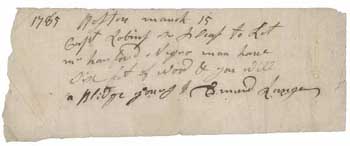 1785 Boston march 15
Capt Robins Pleas to Let
mr han ford Negro man have
Six ft of Wood & you will
a Blidge yours